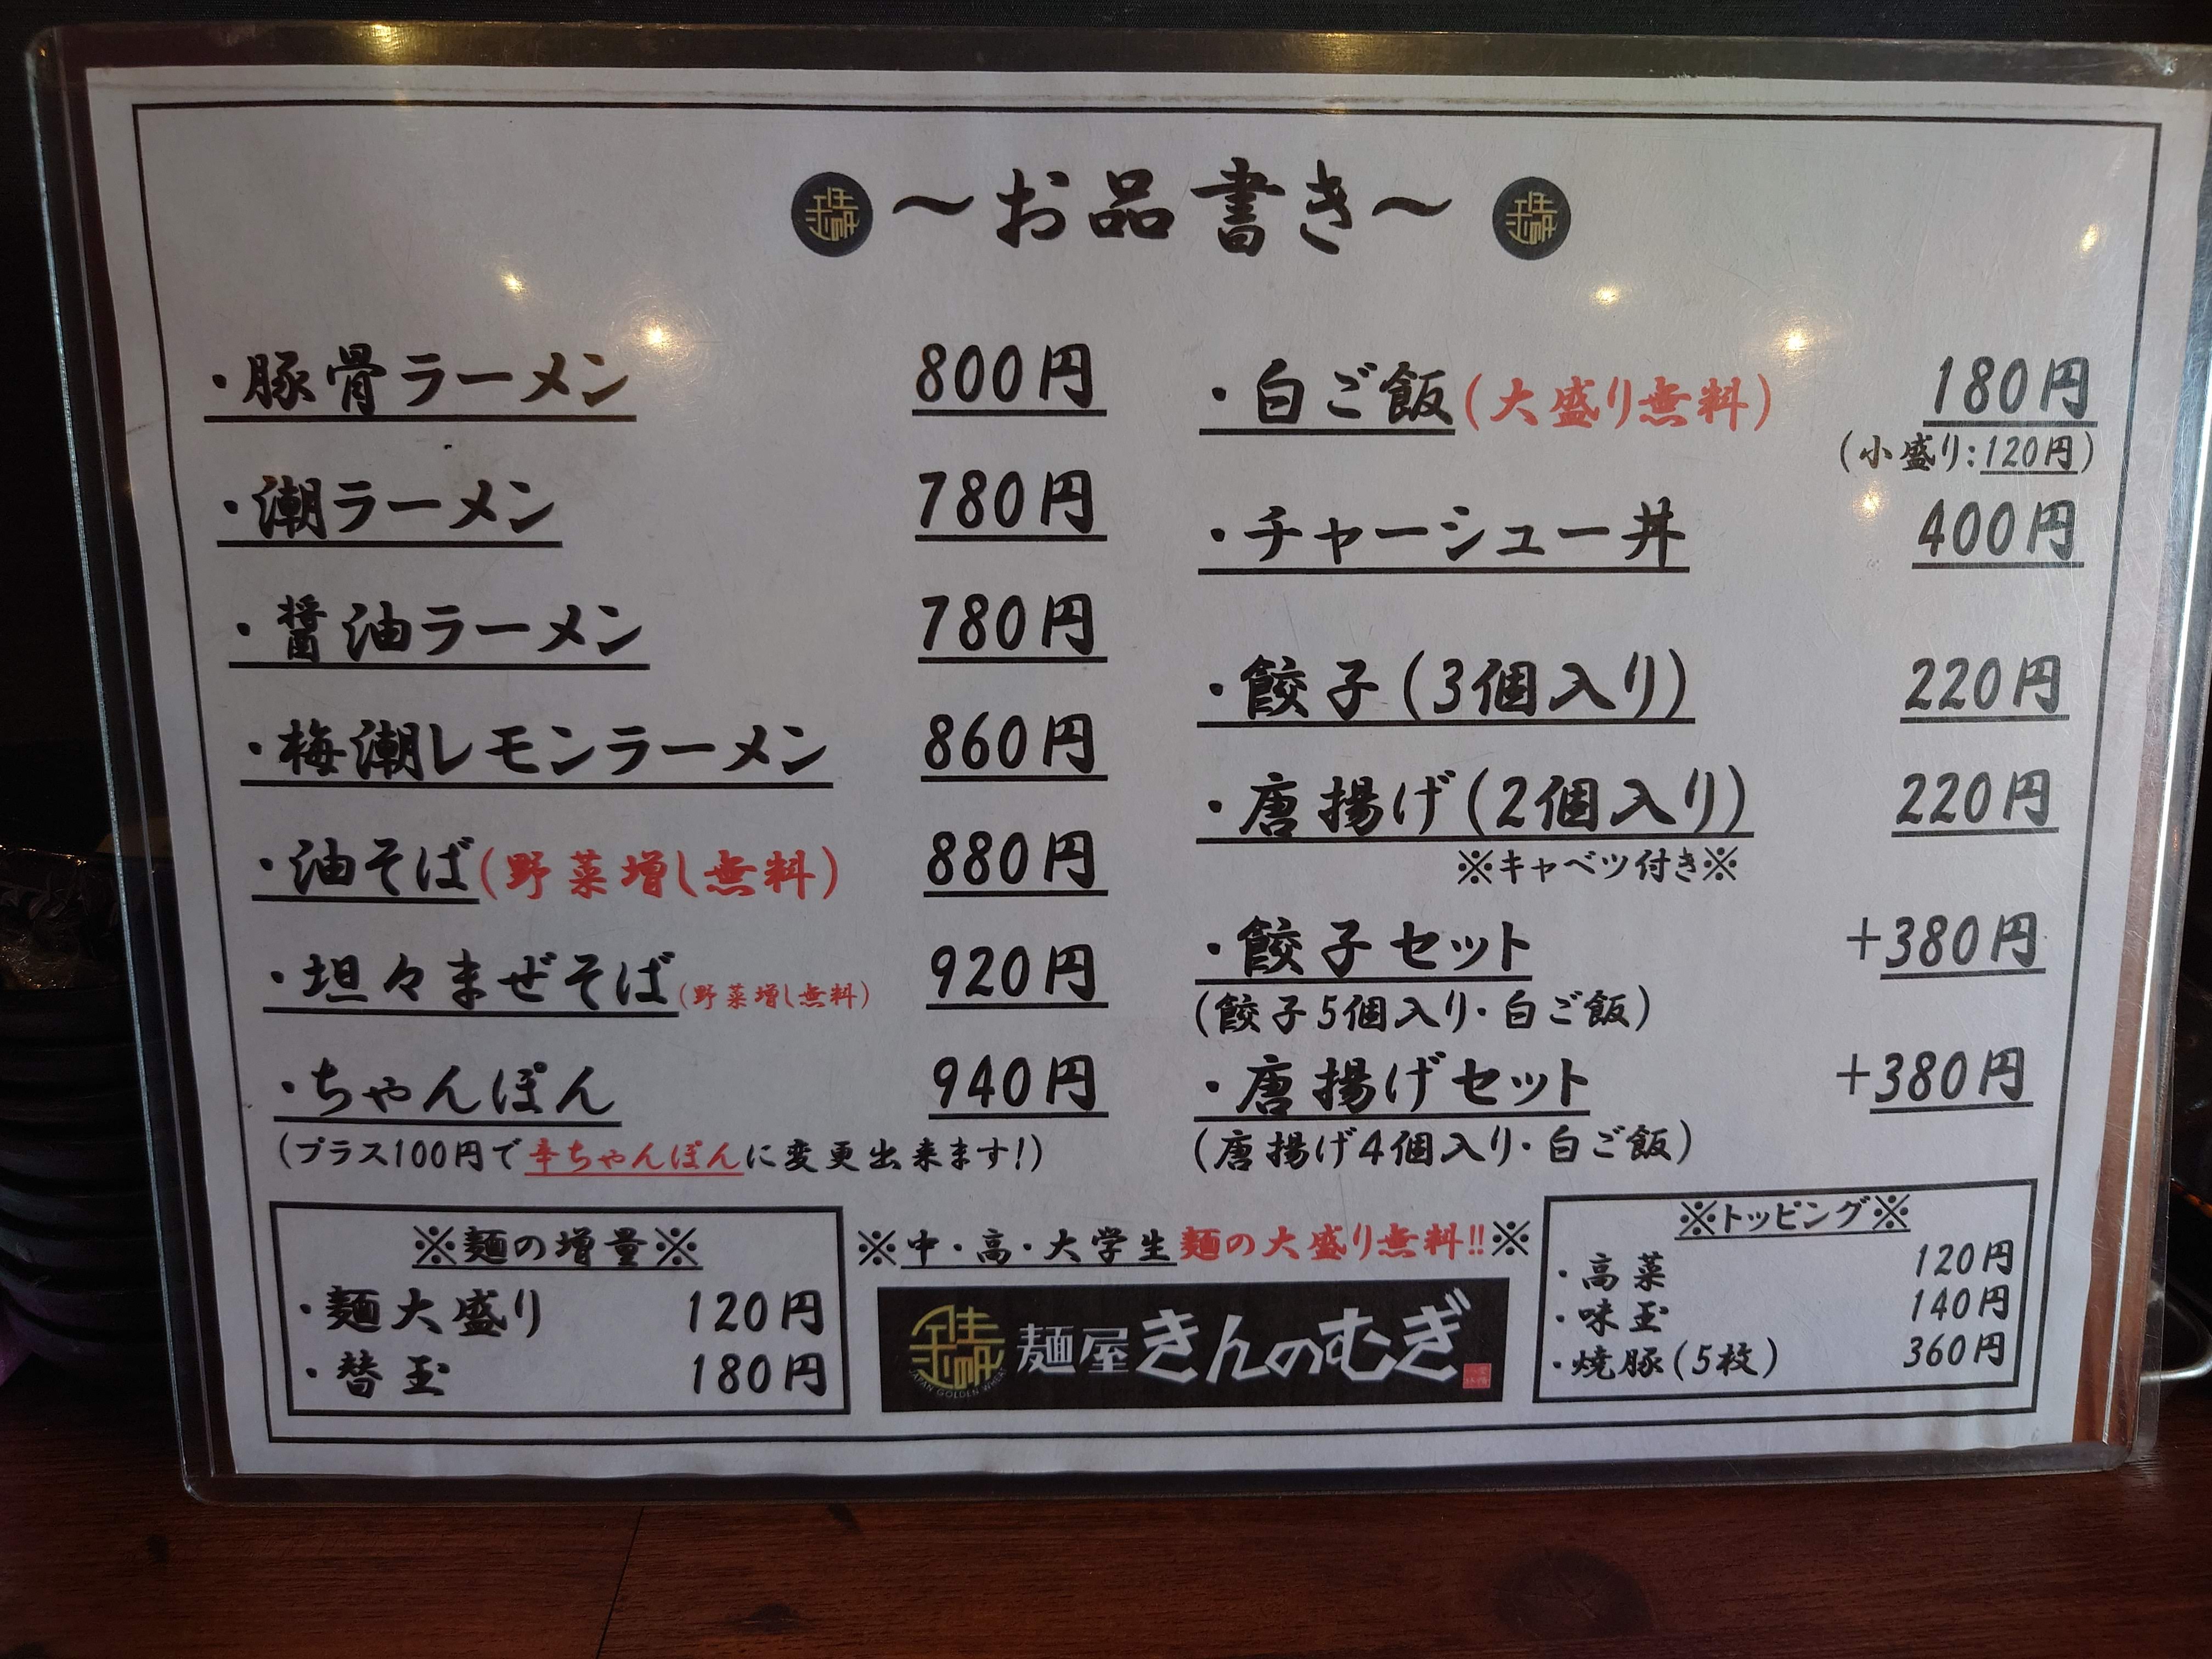 ~お品書き~
・豚骨ラーメン 800円
・潮ラーメン 780円
・醤油ラーメン 780円
・梅潮レモンラーメン 860円
・油そば(野菜増し無料) 880円
・坦々まぜそば(野菜増し無料) 920円
・ちゃんぽん 940円
(プラス100円で辛ちゃんぽんに変更出来ます!)
・白ご飯(大盛り無料) 180円
(小盛り:120円)
・チャーシュー丼 400円
・餃子(3個入り) 220円
・唐揚げ(2個入り) 220円
※キャベツ付き※
・餃子セット +380円
(餃子5個入り・白ご飯)
・唐揚げセット +380円
(唐揚げ4個入り・白ご飯)
※麺の増量※
・麺大盛り 120円
・替玉 180円
※中・高・大学生麺の大盛り無料!!※
麺屋きんのむぎ
JAPAN GOLDEN WHEAT
※トッピング※
・高菜 120円
・味玉 140円
・焼豚(5枚) 360円